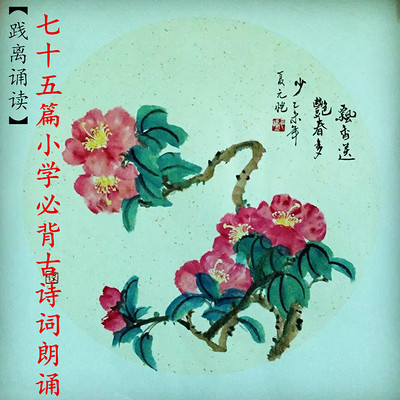 【践离诵读】
七十五篇小学必背古诗词朗诵
飄香送
艷春多
少 乙未年
夏元